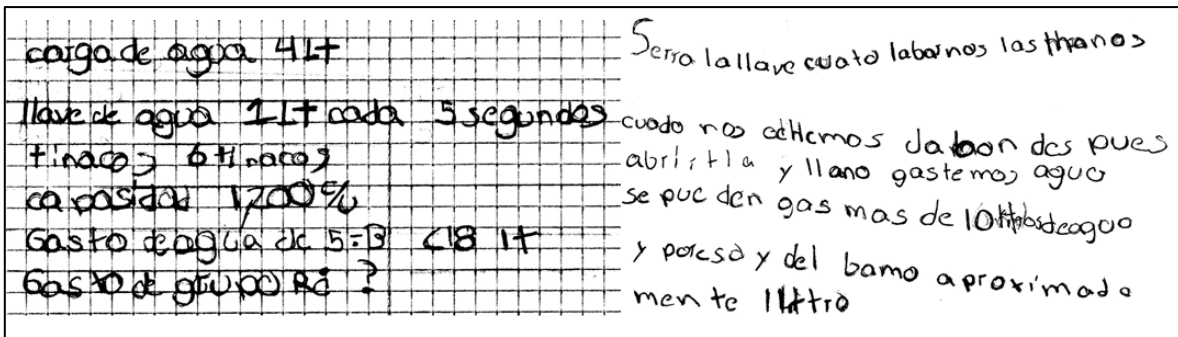 carga de agua 4Lt
llave de agua 1Lt cada 5 segundos
tinacos 6 tinacos
capasidad 1,200%
Gasto de agua de 5=B 48 lt
Gasto de grupo Re ?
Serra la llave cuato labarnos las manos
cuado nos echemos Jabon des pues
abrirtla y llano gastemos agua
se pue den gas mas de 10 litros de agua
y poreso y del bamo aproximada
mente 1 litro